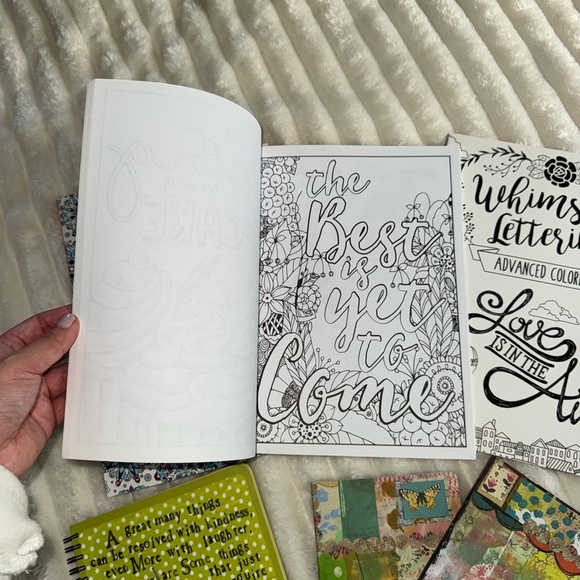 the
Best
is
yet
to
Come
Whims
Letterin
ADVANCED COLOR
Love
IS IN THE
Ai
A great many things
can be resolved with kindness,
even More with laughter,
are Some things
that just
require
CAKE